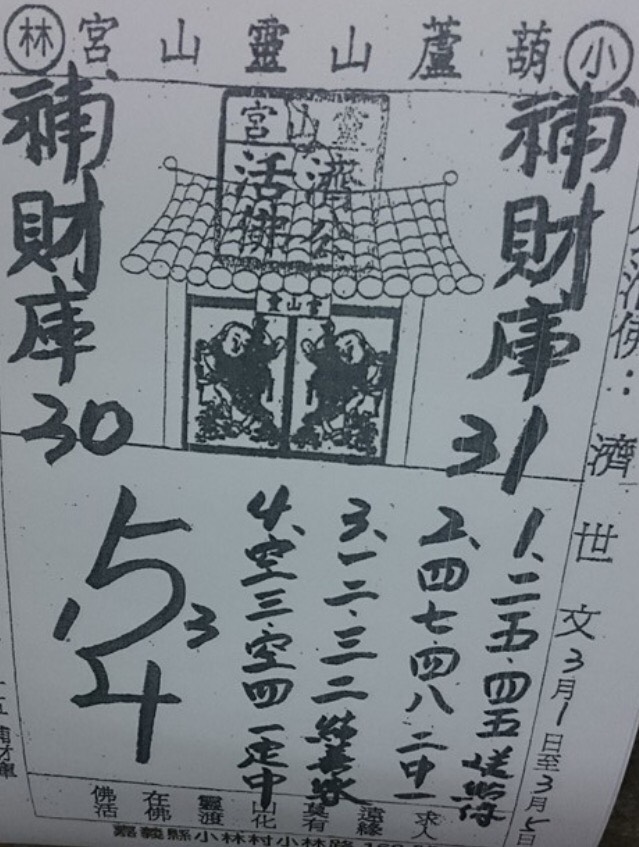 小葫蘆山靈山宮林
補財庫31
補財庫30
靈山宮
濟公
活佛
靈山宮
活佛：濟世文3月1日至3月5日
1、二五．四五
2、四七．四八二中一
3、一二．三二
4、空三．空四一定中
5
1 3
4
求人
遠緣
莫有
山化
靈渡
在佛
佛活
補財庫
嘉義縣小林村小林路